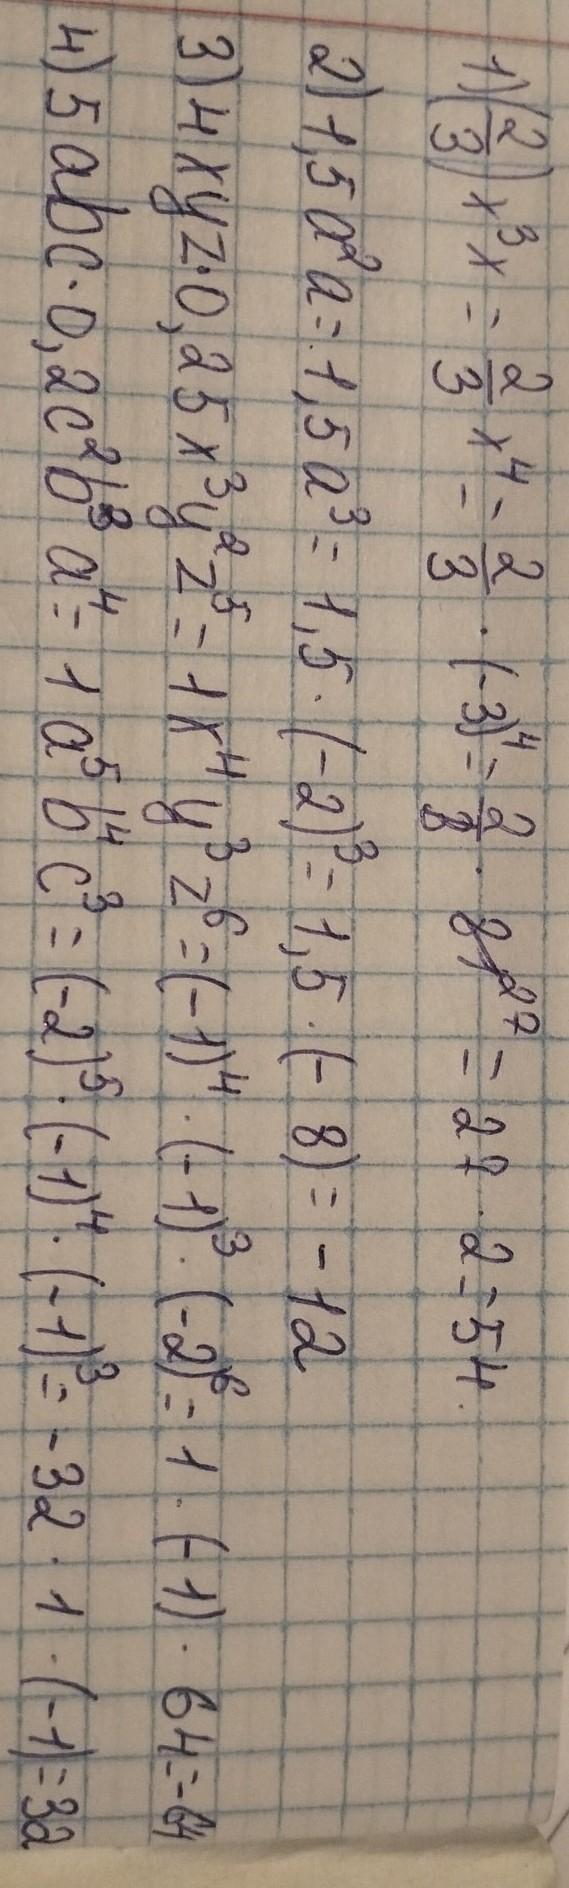 1) (2/3) x³x = 2/3 x⁴ = 2/3 · (-3)⁴ = 2/3 · 81 27 = 27 · 2 = 54.
2) 1,5a²a = 1,5a³ = 1,5 · (-2)³ = 1,5 · (-8) = -12
3) 4xyz·0,25x³y²z⁵ = 1x⁴y³z⁶ = (-1)⁴ · (-1)³ · (-2)⁶ = 1 · (-1) · 64 = -64
4) 5abc·0,2c²b³a⁴ = 1a⁵b⁴c³ = (-2)⁵ · (-1)⁴ · (-1)³ = -32 · 1 · (-1) = 32